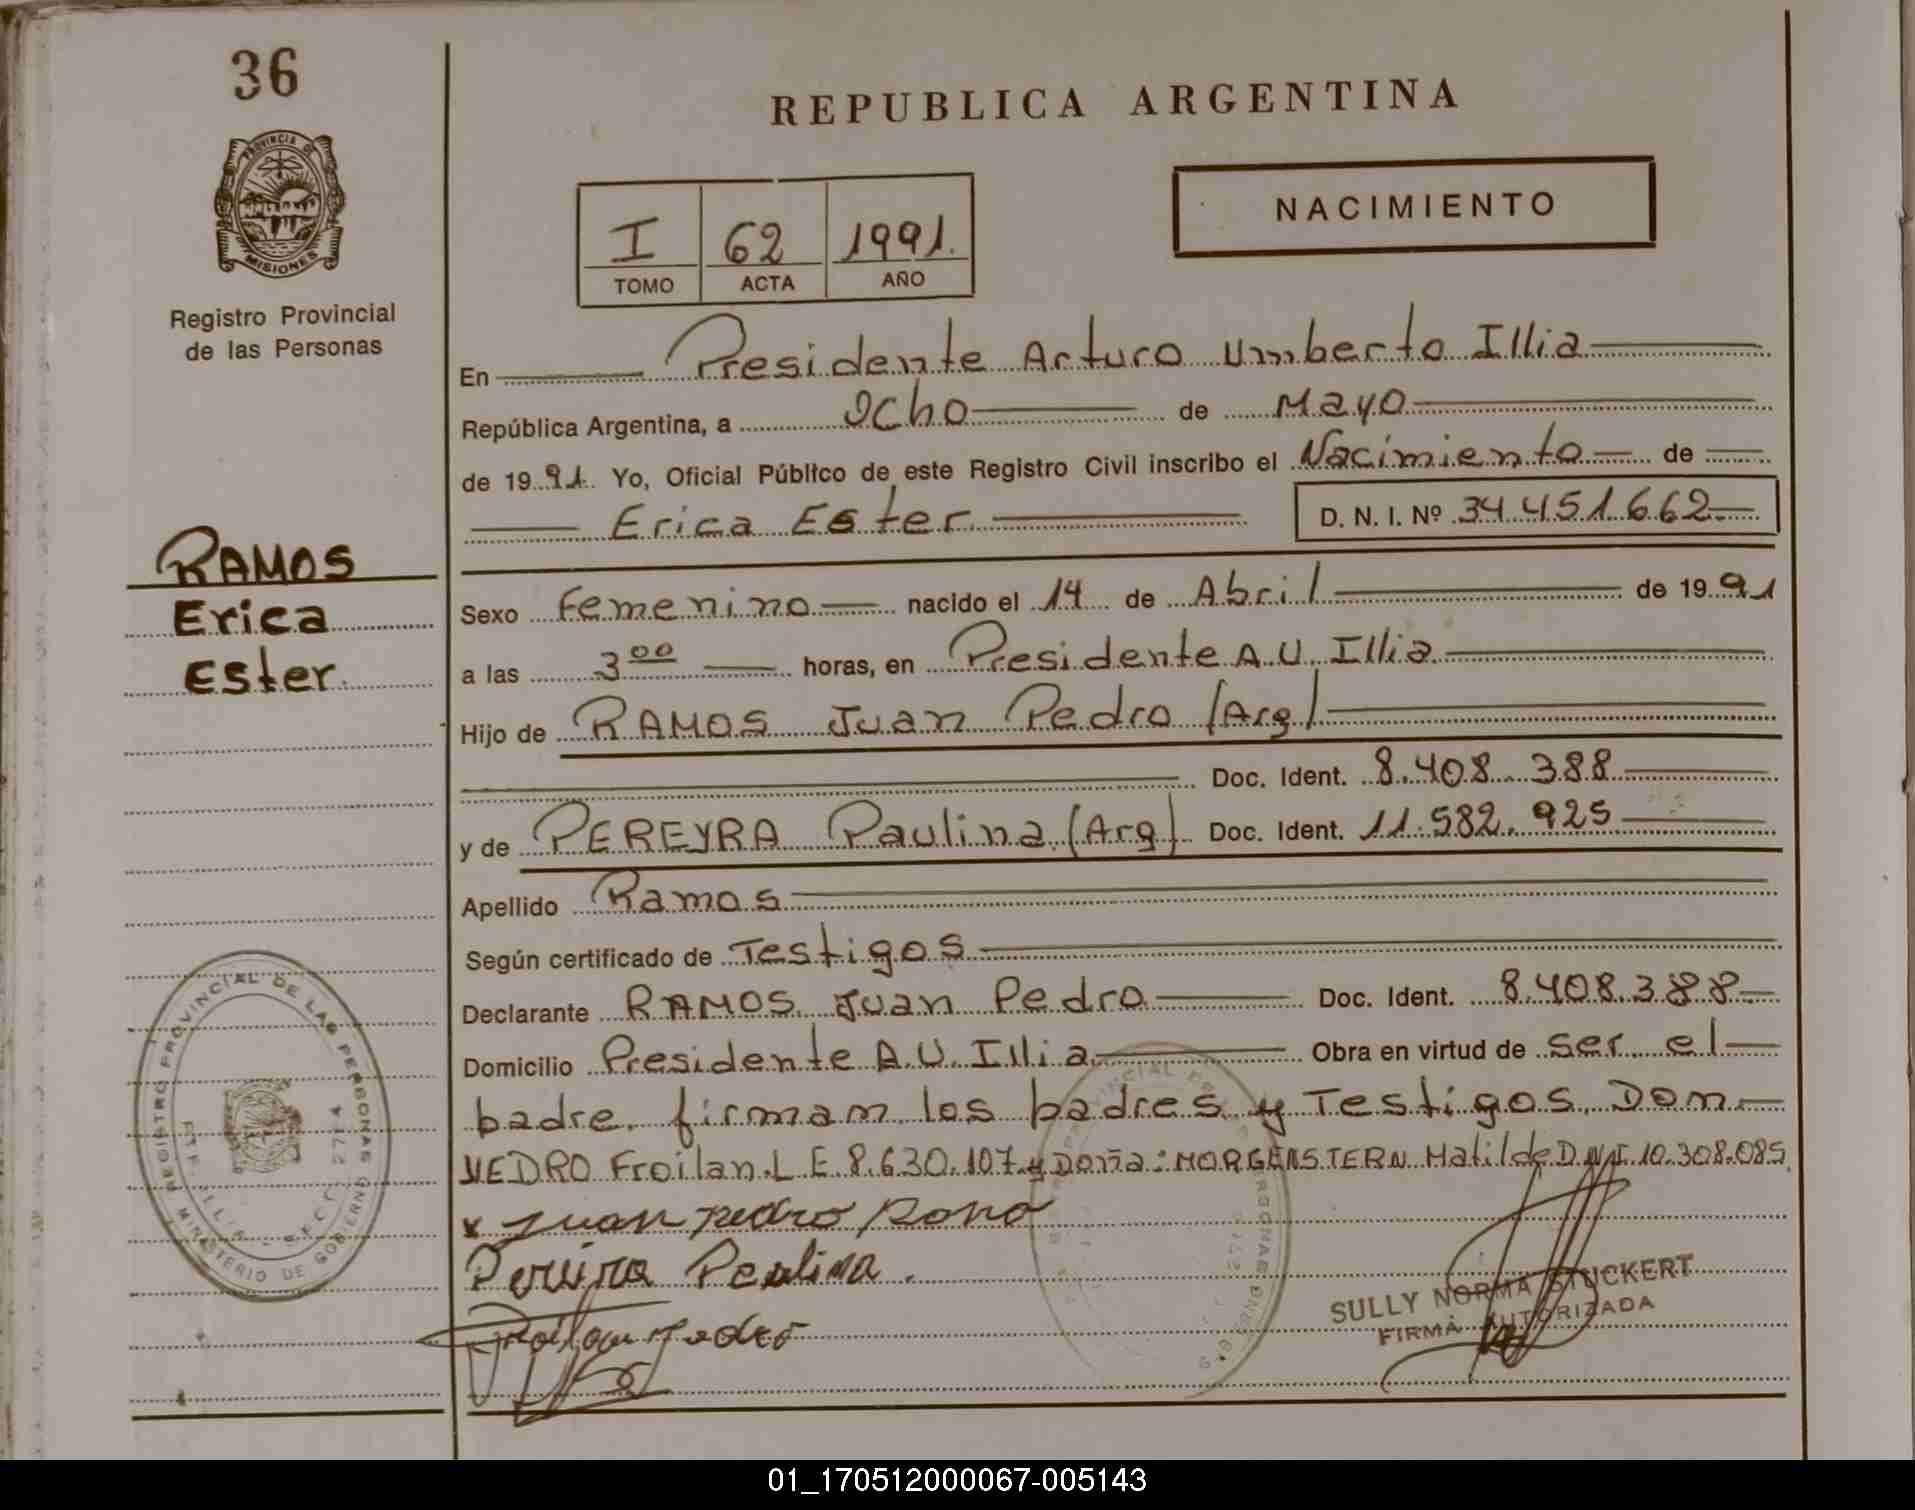 36
REPUBLICA ARGENTINA
PROVINCIA DE
MISIONES
Registro Provincial
de las Personas
I 62 1991.
TOMO ACTA AÑO
NACIMIENTO
En Presidente Arturo Umberto Illia
República Argentina, a Ocho de Mayo
de 1991. Yo, Oficial Público de este Registro Civil inscribo el Nacimiento de
Erica Ester D. N. I. Nº 34.451.662
RAMOS
Erica
Ester.
Sexo Femenino nacido el 14 de Abril de 1991
a las 3 00 horas, en Presidente A.U. Illia
Hijo de RAMOS Juan Pedro (Arg)
Doc. Ident. 8.408.388
y de PEREYRA Paulina (Arg) Doc. Ident. 11.582.925
Apellido Ramos
Según certificado de Testigos
Declarante RAMOS Juan Pedro Doc. Ident. 8.408.388
Domicilio Presidente A.U. Illia Obra en virtud de ser el
padre. firmam los padres y Testigos Don
VEDRO Froilan. L E. 8.630.107 y Doña: MORGENSTERN Matilde D.N.I. 10.308.085
x Juan pedro
Pereira Paulina.
SULLY NORMA STUCKERT
FIRMA AUTORIZADA
REGISTRO PROVINCIAL DE LAS PERSONAS
MINISTERIO DE GOBIERNO
01_170512000067-005143